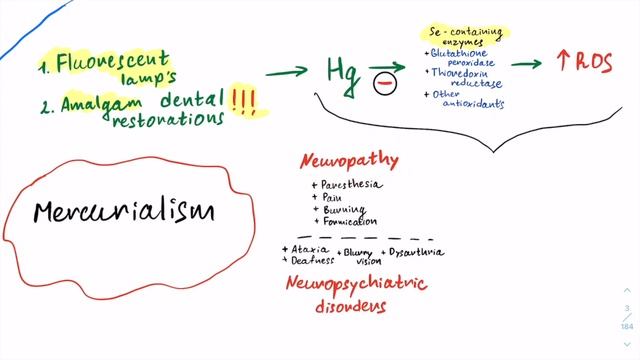 1. Fluorescent
lamp's
2. Amalgam dental !!!
restorations
Hg
−
Se-containing
enzymes
+ Glutathione
peroxidase
+ Thioredoxin
reductase
+ Other
antioxidants
↑ROS
Mercurialism
Neuropathy
+ Paresthesia
+ Pain
+ Burning
+ Formication
+ Ataxia + Blurry + Dysarthria
+ Deafness vision
Neuropsychiatric
disorders
3
/
184